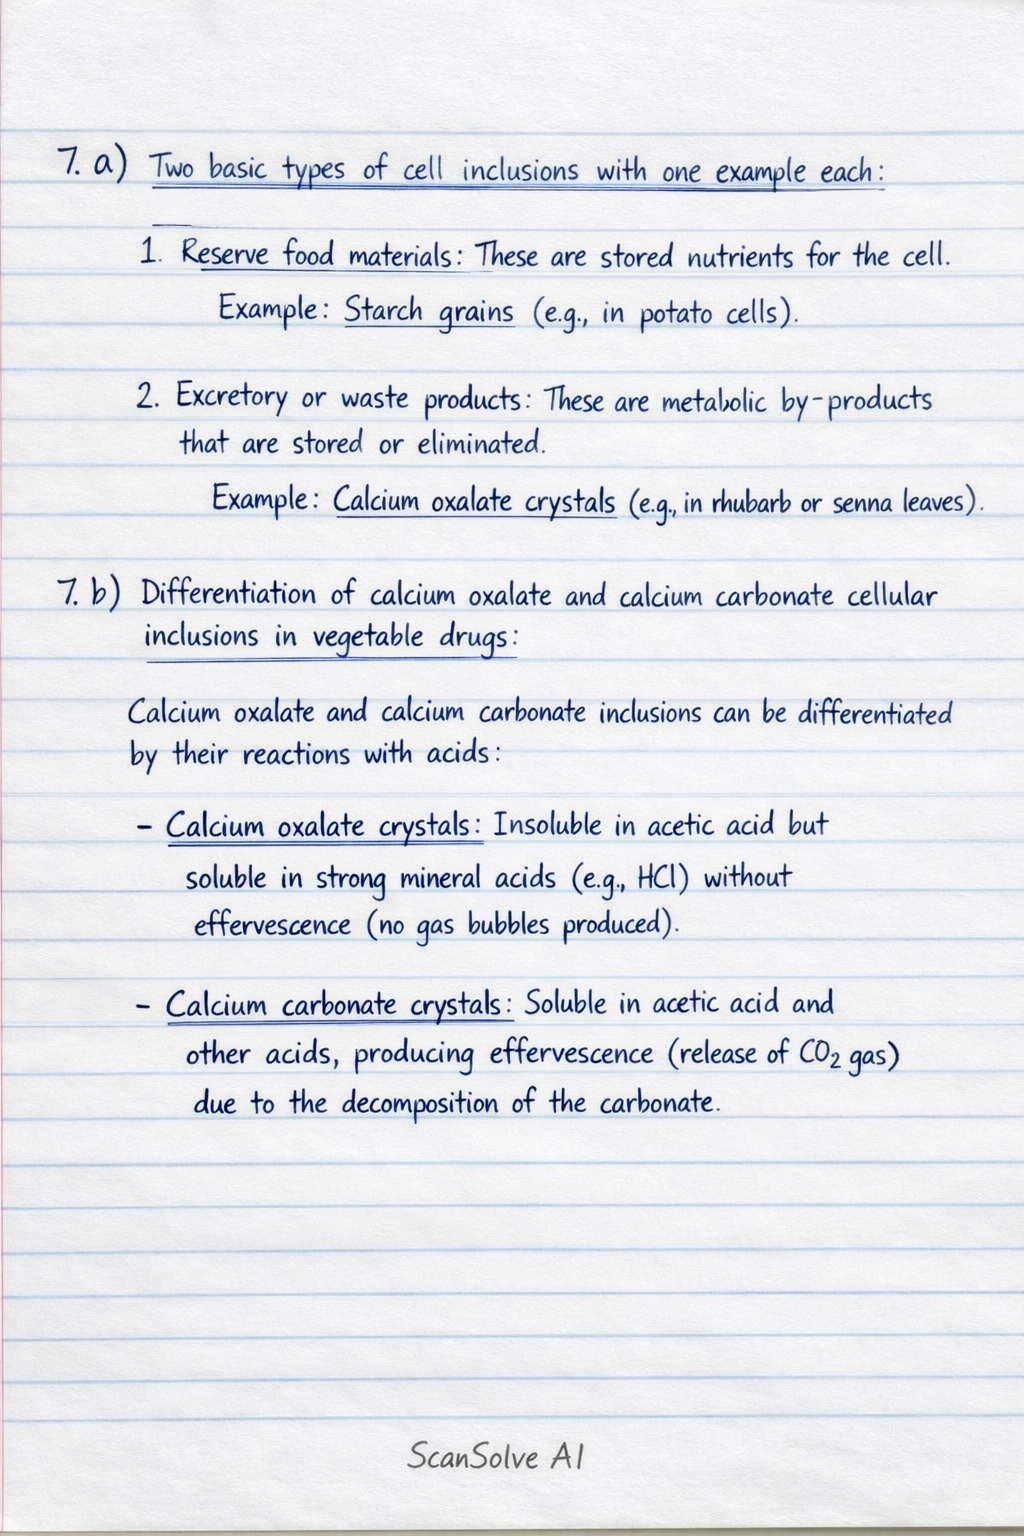 7. a) Two basic types of cell inclusions with one example each:
1. Reserve food materials: These are stored nutrients for the cell.
Example: Starch grains (e.g., in potato cells).
2. Excretory or waste products: These are metabolic by-products
that are stored or eliminated.
Example: Calcium oxalate crystals (e.g., in rhubarb or senna leaves).
7. b) Differentiation of calcium oxalate and calcium carbonate cellular
inclusions in vegetable drugs:
Calcium oxalate and calcium carbonate inclusions can be differentiated
by their reactions with acids:
- Calcium oxalate crystals: Insoluble in acetic acid but
soluble in strong mineral acids (e.g., HCl) without
effervescence (no gas bubbles produced).
- Calcium carbonate crystals: Soluble in acetic acid and
other acids, producing effervescence (release of CO₂ gas)
due to the decomposition of the carbonate.
ScanSolve AI